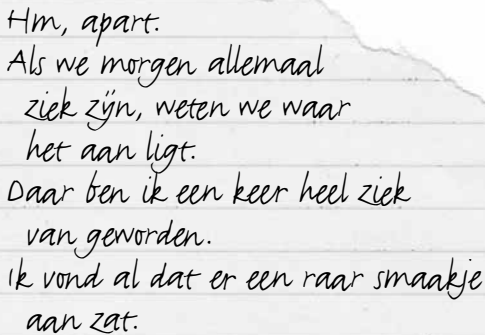 Hm, apart.
Als we morgen allemaal
ziek zijn, weten we waar
het aan ligt.
Daar ben ik een keer heel ziek
van geworden.
Ik vond al dat er een raar smaakje
aan zat.